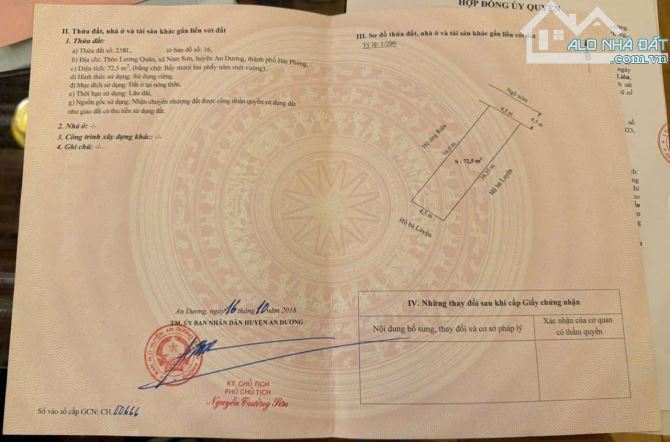 HỢP ĐỒNG ỦY QUYỀN
ALO NHÀ ĐẤT
.com.vn
II. Thửa đất, nhà ở và tài sản khác gắn liền với đất
1. Thửa đất:
a) Thửa đất số: 258L, tờ bản đồ số: 16,
b) Địa chỉ: Thôn Lương Quán, xã Nam Sơn, huyện An Dương, thành phố Hải Phòng,
c) Diện tích: 72,5 m², (bằng chữ: Bảy mươi hai phẩy năm mét vuông),
d) Hình thức sử dụng: Sử dụng riêng,
đ) Mục đích sử dụng: Đất ở tại nông thôn,
e) Thời hạn sử dụng: Lâu dài,
g) Nguồn gốc sử dụng: Nhận chuyển nhượng đất được công nhận quyền sử dụng đất
như giao đất có thu tiền sử dụng đất.
2. Nhà ở: -/-
3. Công trình xây dựng khác: -/-.
4. Ghi chú: -/-.
An Dương, ngày 16 tháng 10 năm 2018
TM. ỦY BAN NHÂN DÂN HUYỆN AN DƯƠNG
KT. CHỦ TỊCH
PHÓ CHỦ TỊCH
Nguyễn Trường Sơn
Số vào sổ cấp GCN: CH. 00666
III. Sơ đồ thửa đất, nhà ở và tài sản khác gắn liền với đất
Tỷ lệ: 1/200
B
Ngõ xóm
4,5 m
4,5 m
Hộ ông Riễn
16,0 m
S : 72,5 m²
16,35 m
Hộ bà Luyện
4,5 m
Hộ bà Luyện
IV. Những thay đổi sau khi cấp Giấy chứng nhận
Nội dung bổ sung, thay đổi và cơ sở pháp lý
Xác nhận của cơ quan
có thẩm quyền